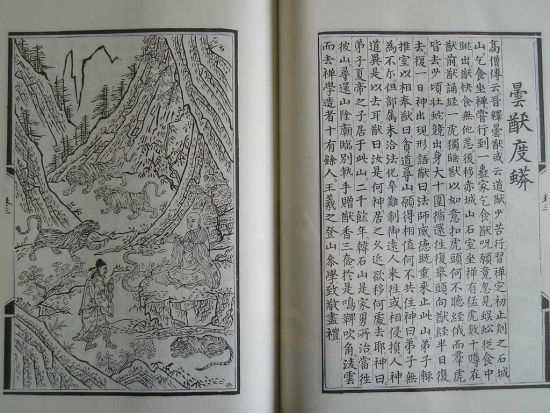 曇猷度蟒
高僧傳云晉釋曇猷或云道猷少苦行習禪定初止剡之石城
山乞食坐禪嘗行到一蠱家乞食猷呪願竟忽見蜈蚣從食中
跳出猷快食無他後移赤城山石室坐禪有猛虎數十蹲在
猷前猷誦經一虎獨睡猷以如意扣虎頭何不聽經俄而羣虎
皆去少頃壯蛇競出身大十圍循還往復舉頭向猷經半日復
去復一日神出現形語猷曰法師威德既重來止此山弟子輒
推室以相奉猷曰貧道尋山願得相值何不共住神曰弟子無
為不尔但部屬未洽法化卒難制御遠人來往或相侵損人神
道異是以去耳猷曰汝是何神居之久近欲移何處去耶神曰
弟子夏帝之子居于此山二千餘年韓石山是家舅所治當往
彼山尋還山陰廟臨別執手贈猷香三奩於是鳴鞞吹角凌雲
而去禪學造者十有餘人王羲之登山參學致敬盡禮